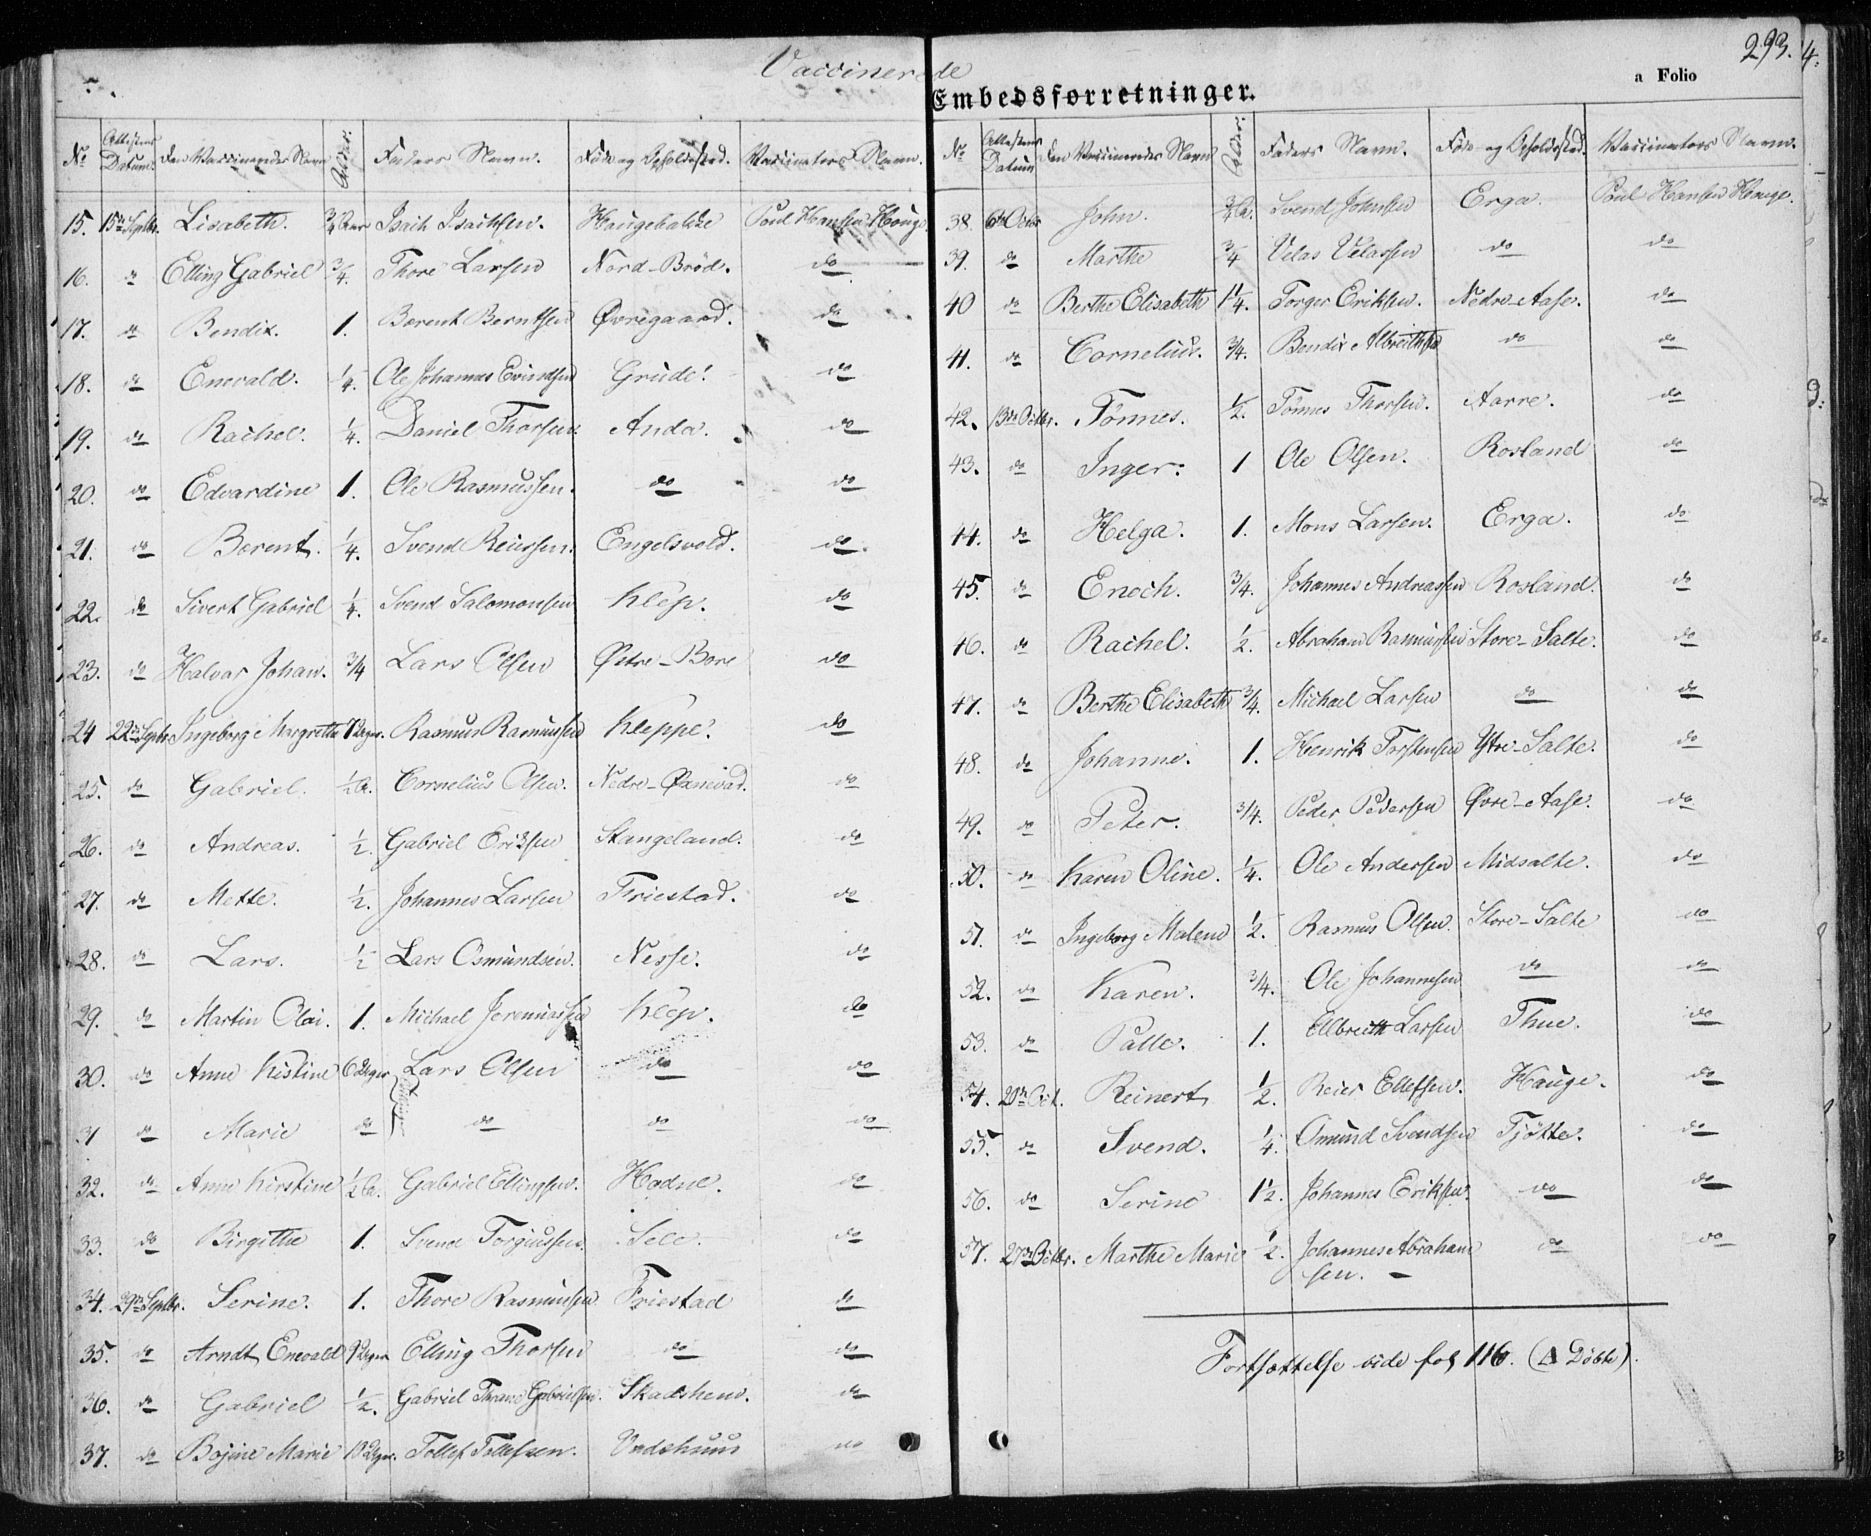 Vaccinerede
Embedsforretninger.
a Folio
293.
No Attestens Datum. Den Vaccineredes Navn Alder. Faders Navn. Føde og Opholdssted. Vaccinators Navn.
15. 15de Septbr. Lisabeth. 3/4 Aar Isach Isachsen. Haugebakke Poul Hansen Hauge
16. do Elling Gabriel 3/4. Thore Larsen Nord-Bröd. do
17. do Bendix. 1. Berent Berntsen Øvregaard. do
18. do Enevald. 1/4. Ole Johannes Evindsen Grude. do
19. do Rachel. 1/4. Daniel Thorsen Anda. do
20. do Edvardine 1. Ole Rasmussen. do do
21. do Berent. 1/4. Svend Reiersen. Engelsvold. do.
22. do Sivert Gabriel 1/4. Svend Salomonsen Klep. do
23. do Halvar Johan. 3/4 Lars Olsen Østre-Bore do
24 22de Septbr Ingeborg Margrethe Uger. Rasmus Rasmussen Kleppe. do
25. do Gabriel. 1/2 A. Cornelius Olsen. Nedre-Øxnevad. do
26. do Andreas. 1/2. Gabriel Eriksen Stangeland. do
27. do Mette. 1/2. Johannes Larsen Friestad. do
28. do Lars. 1/2 Lars Osmundsen. Nesse. do
29. do Martin Olai. 1. Michael Jeremiassen Klep. do
30. do Anne Kistine 6 Uger Lars Olsen do do
31 do Marie do do do do
32. do Anne Kirstine 1/2 A. Gabriel Ellingsen. Hodne. do
33. do Birgithe 1. Svend Torgiussen. Sele. do
34. 29de Septbr. Serine. 1. Thore Rasmussen Friestad do
35. do Arndt Enevald 9 Uger Elling Thorsen do do
36. do Gabriel 1/2. Gabriel Thrane Gabrielsen. Skadsheim. do
37. do Bojine Marie 10 Uger. Tollef Tollefsen. Vadshuus do
No Attestens Datum Den Vaccineredes Navn Alder. Faders Navn. Føde og Opholdssted. Vaccinators Navn.
38. 6te Octbr John. 3/4 A. Svend Johnsen Erga. Poul Hansen Hauge.
39. do Marthe 3/4 Velas Velassen do do
40 do Berthe Elisabeth 1 1/4. Torger Eriksen. Nedre-Aase. do
41. do Cornelius. 3/4. Bendix Albretthsen do do
42. 13de Octbr. Tönnes. 1/2. Tönnes Thorsen. Aarre. do
43. do Inger. 1 Ole Olsen. Rosland do
44. do Helga. 1. Mons Larsen. Erga. do
45. do Enoch. 3/4. Johannes Andreassen Rosland. do
46. do Rachel. 1/2. Abraham Rasmussen Store-Salte. do
47. do Berthe Elisabeth 3/4. Michael Larsen do do
48. do Johanne. 1. Henrik Torstensen Ytre-Salte. do
49. do Peter. 3/4. Peder Pedersen Øvre-Aase. do
50. do Karen Oline. 1/4. Ole Andersen Midsalte. do
51. do Ingeborg Malene 1/2. Rasmus Olsen. Store-Salte do
52. do Karen. 3/4. Ole Johannesen do do
53. do Palle. 1. Ellbreth Larsen Thue. do
54. 20de Oct. Reinert 1/2. Reier Ellefsen. Hauge. do
55. do Svend. 1/4. Omund Svendsen Tjötte. do
56. do Serine 1 1/2. Johannes Eriksen. do do
57. 27de Octbr. Marthe Marie 1/2. Johannes Abraham
sen. do do
Fortsættelse vide fol 116. (A Döbte).